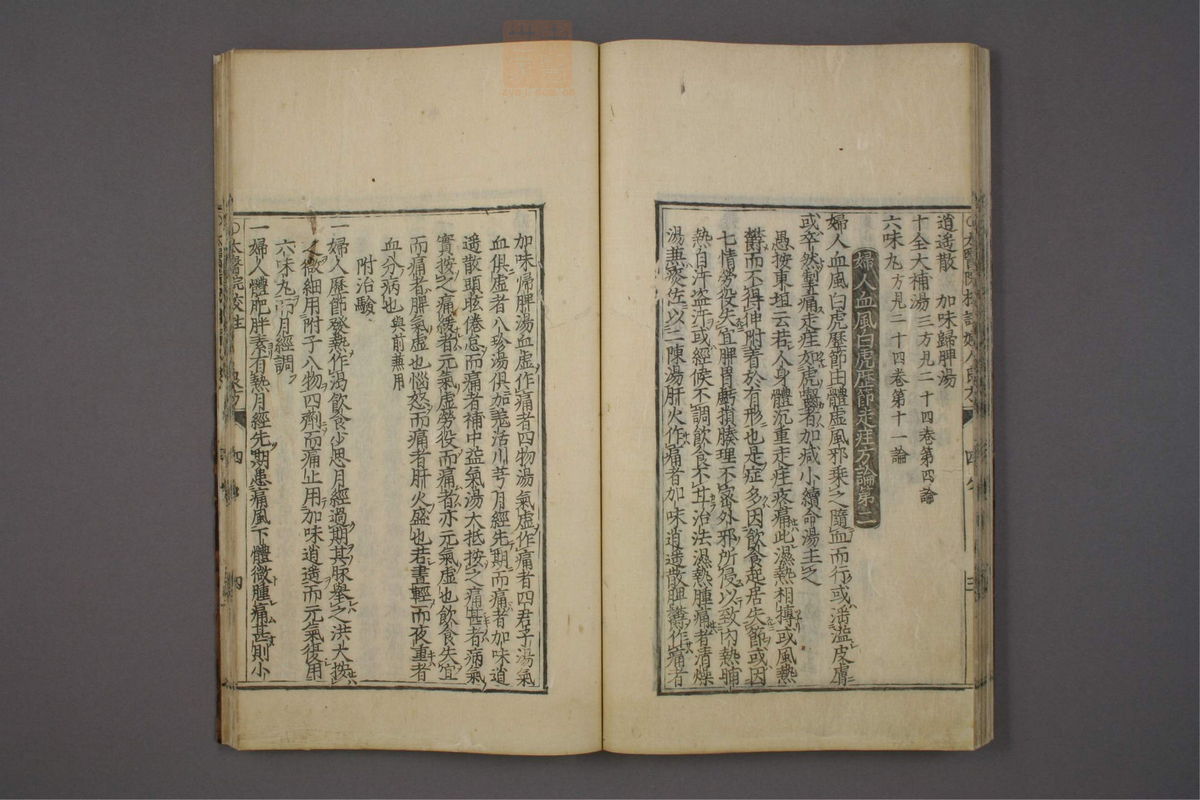 逍遙散　加味歸脾湯
十全大補湯三方見二十四卷第四論
六味丸方見二十四卷第十一論
婦人血風白虎歷節走疰方論第三
婦人血風白虎歷節由體虛風邪乘之隨血而行或淫溢皮膚
或卒然掣痛走疰如虎齧者加減小續命湯主之
愚按東垣云若人身體沉重走疰疼痛此濕熱相搏或風熱
鬱而不得伸附著於有形也是症多因飲食起居失節或因
七情勞役失宜脾胃虧損腠理不密外邪所侵以致內熱晡
熱自汗盜汗或經候不調飲食不甘治法濕熱腫痛者清燥
湯兼痰佐以二陳湯肝火作痛者加味逍遙散脾鬱作痛者
加味歸脾湯血虛作痛者四物湯氣虛作痛者四君子湯氣
血俱虛者八珍湯俱加羗活川芎月經先期而痛者加味逍
遙散頭眩倦怠而痛者補中益氣湯大抵按之痛甚者病氣
實按之痛緩者元氣虛勞役而痛者亦元氣虛也飲食失宜
而痛者脾氣虛也惱怒而痛者肝火盛也若晝輕而夜重者
血分病也與前兼用
附治驗
一婦人歷節發熱作渴飲食少思月經過期其脉舉之洪大按
之微細用附子八物四劑而痛止用加味逍遙而元氣復用
六味丸而月經調
一婦人體肥胖素有熱月經先期患痛風下體微腫痛甚則小
太醫院校註
良方
四